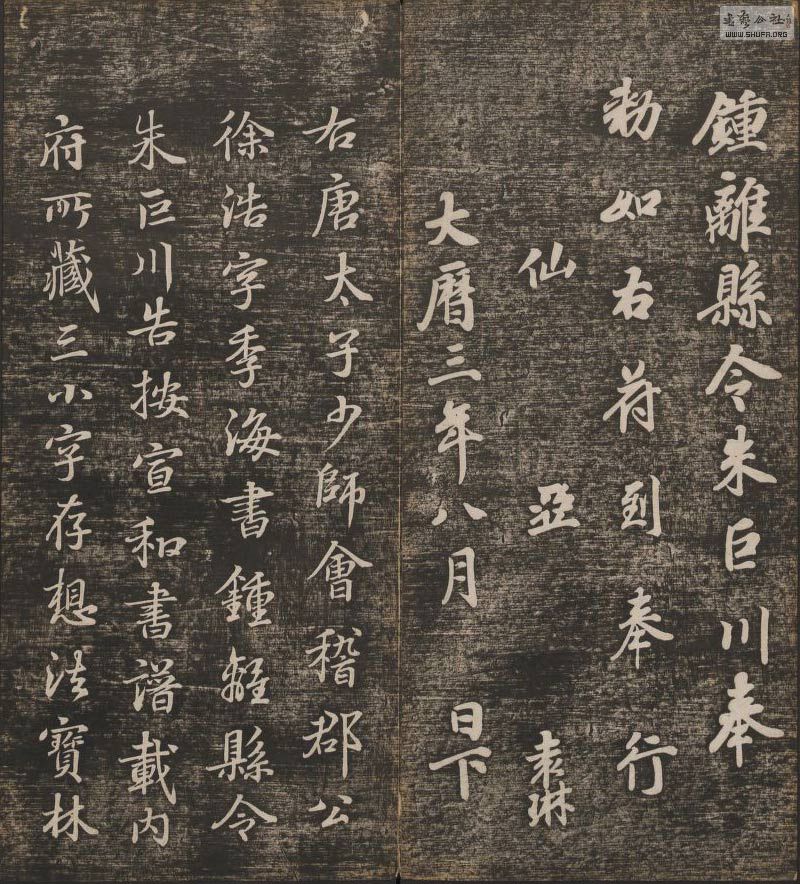 鍾離縣令朱巨川奉
勑如右符到奉行
仙 亞 袁琳
大曆三年八月 日下
右唐太子少師會稽郡公
徐浩字季海書鍾離縣令
朱巨川告按宣和書譜載内
府所藏三小字存想法寶林
書藝公社
WWW.SHUFA.ORG